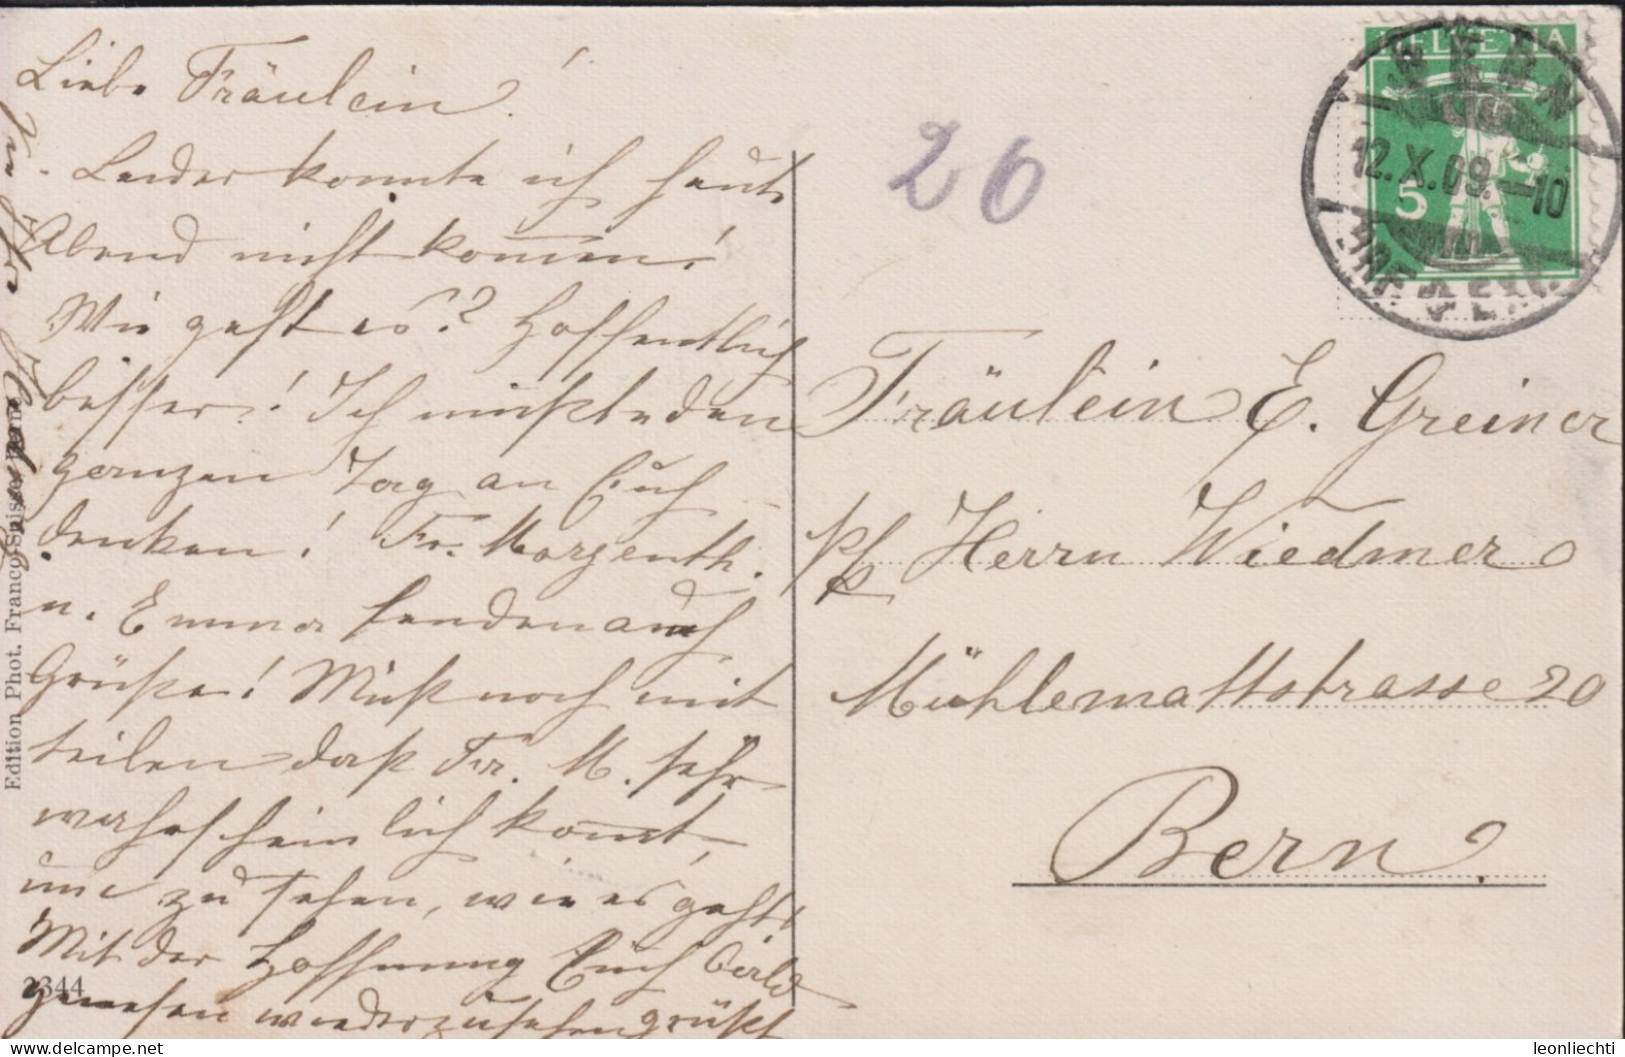 Liebe Fräulein!
Leider konnte ich heute
Abend nicht kommen!
Wie geht es? Hoffentlich
besser! Ich mußte den
ganzen Tag an Euch
denken! Fr. Morgenth.
u. Emma senden auch
Grüße! Muß noch mit
teilen daß Fr. M. sehr
wahrscheinlich kommt,
um zu sehen, wie es geht!
Mit der Hoffnung Euch bald
genesen wiederzusehen grüßt
Edition Phot. Franco-Suisse, Berne
2344
26
HELVETIA
5
BERN
12.X.09.–10
BRF. AUFG.
Fräulein E. Greiner
p/a Herrn Wiedmer
Mühlemattstrasse 20
Bern.
leonliechti